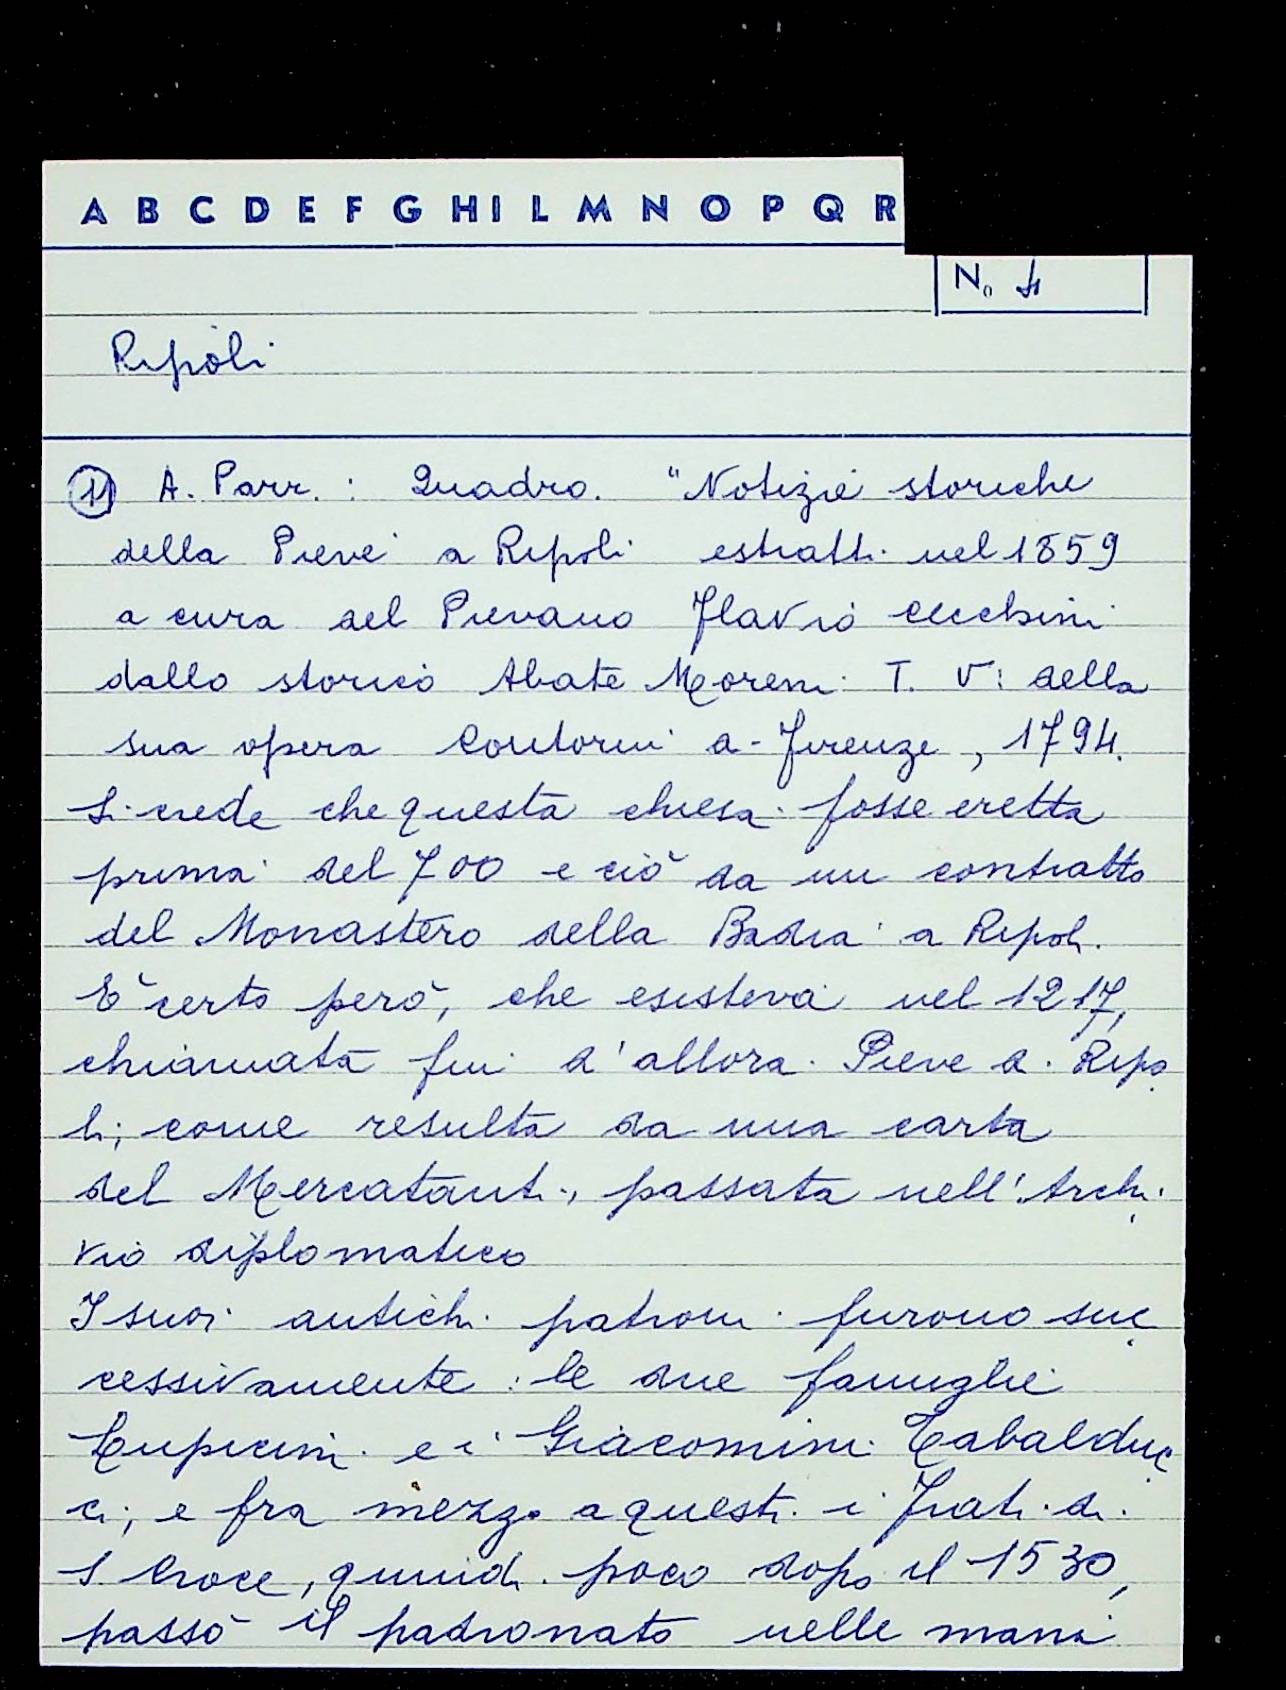 A B C D E F G H I L M N O P Q R
No 4
Ripoli
1) A. Parr. : Quadro. "Notizie storiche
della Pieve a Ripoli estratti nel 1859
a cura del Pievano Flavio Cecchini
dallo storico Abate Moreni T. V: della
sua opera Contorni a - Firenze, 1794.
Si crede che questa chiesa fosse eretta
prima del 700 e ciò da un contratto
del Monastero della Badia a Ripoli.
E' certo però, che esisteva nel 1217,
chiamata fin d'allora Pieve a Ripo
li; come resulta da una carta
del Mercatanti, passata nell'Archi
vio diplomatico
I suoi antichi patroni furono suc
cessivamente : le due famiglie
Lupicini e i Giacomini Tabalduc
ci; e fra mezzo a questi i Frati di
S Croce, quindi poco dopo il 1530,
passò il padronato nelle mani